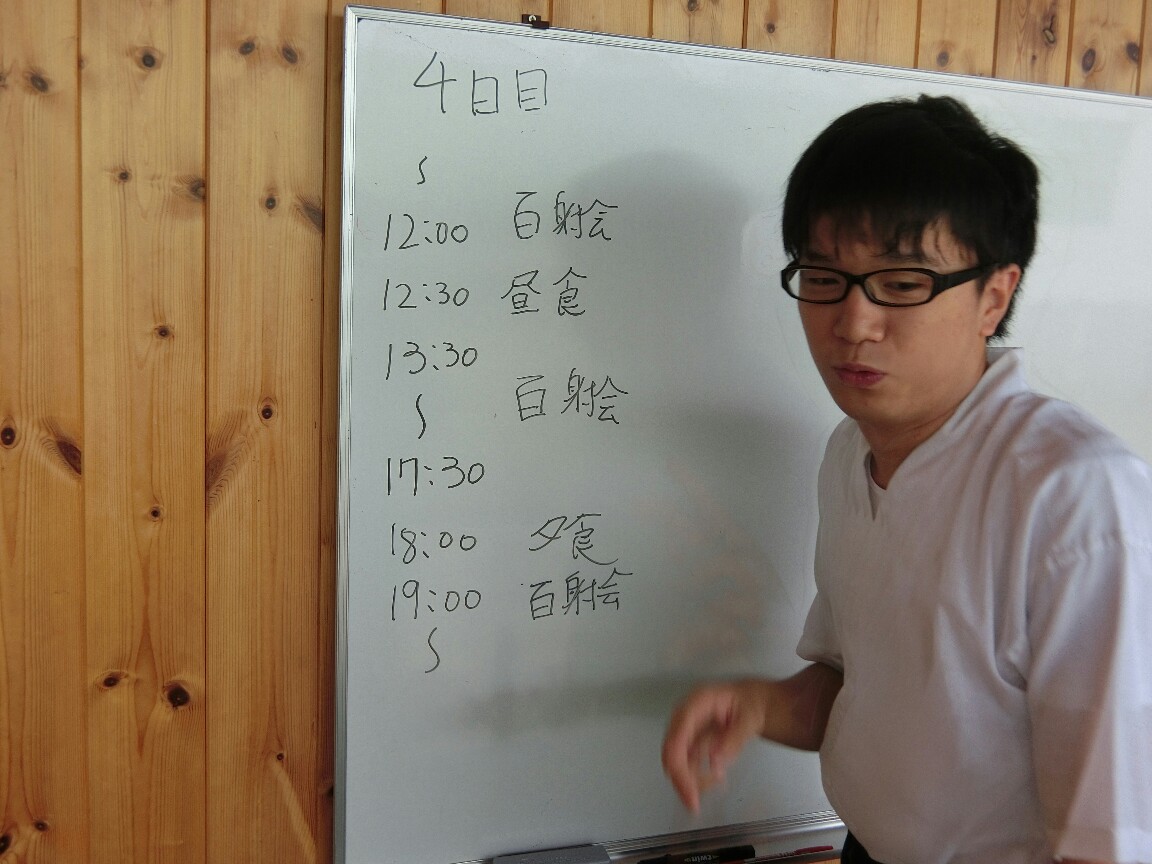 4日目
〜
12:00 百射会
12:30 昼食
13:30
〜 百射会
17:30
18:00 夕食
19:00 百射会
〜